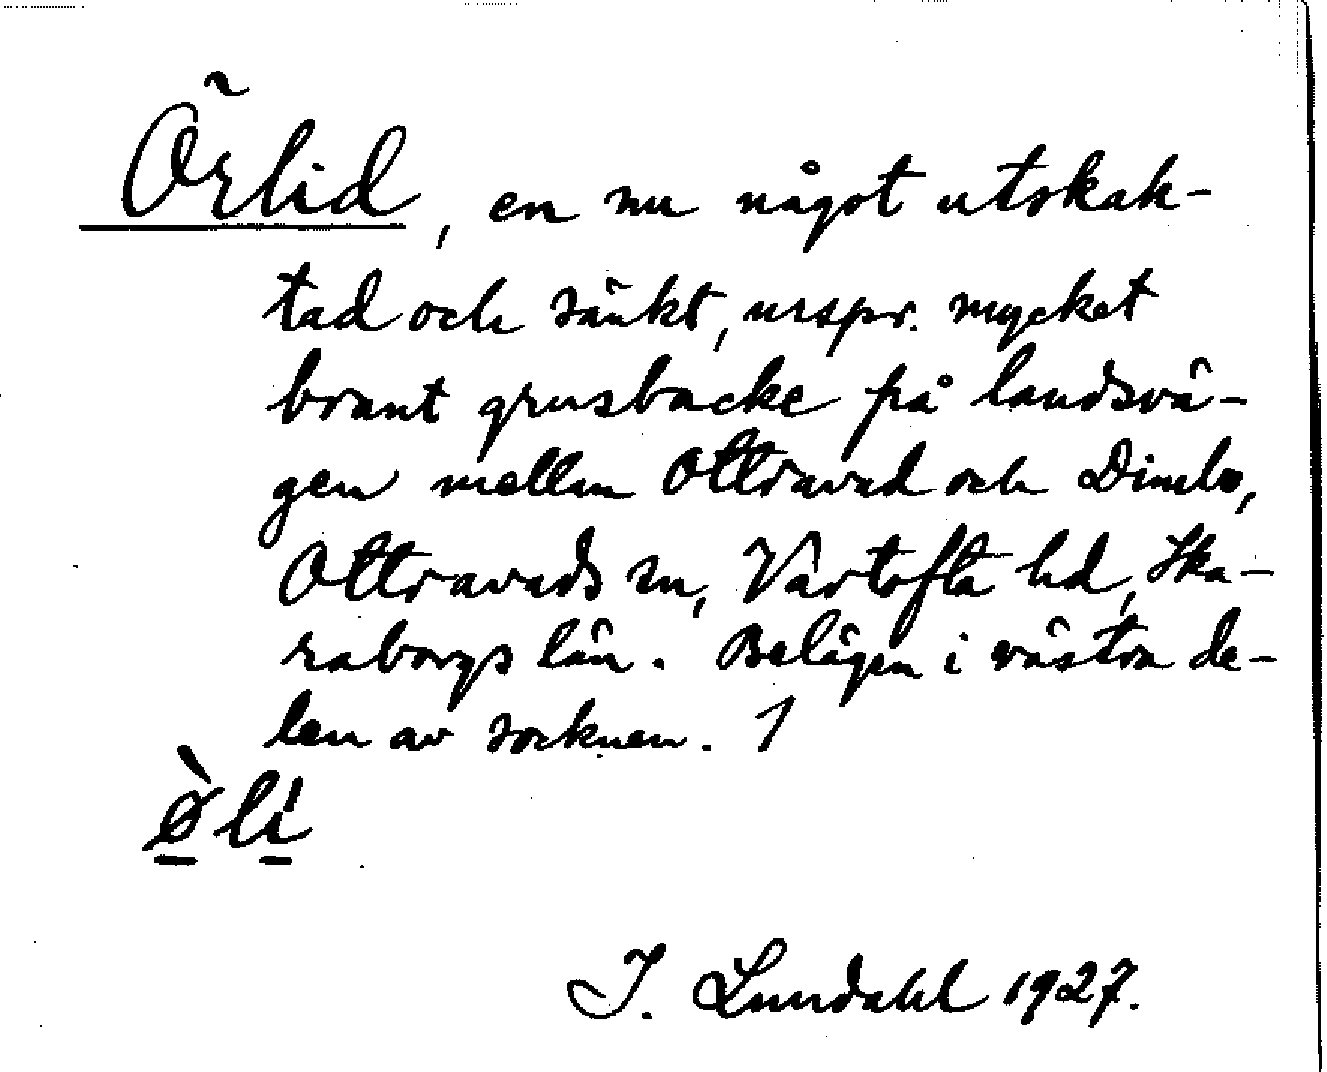 Örlid, en nu något utskak-
tad och sänkt, urspr. mycket
brant grusbacke på landsvä-
gen mellan Ottravad och Dimbo,
Ottravads sn, Vartofta hd, Ska-
raborgs län. Belägen i västra de-
len av socknen. 1
ø̀li
I. Lundahl 1927.